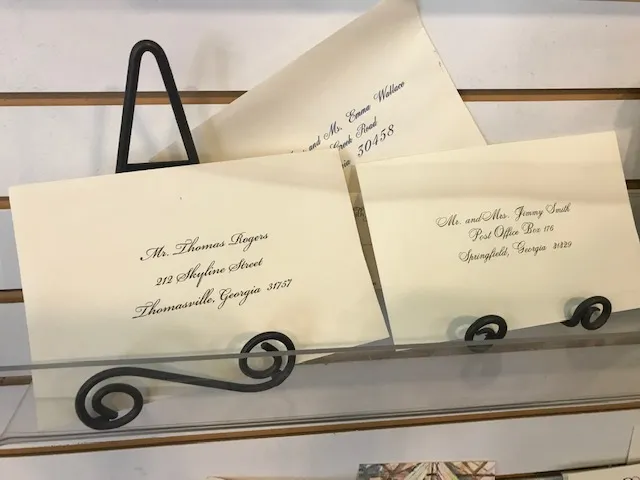 and Ms. Emma Wallace
Creek Road
30458
Mr. Thomas Rogers
212 Skyline Street
Thomasville, Georgia 31757
Mr. and Mrs. Jimmy Smith
Post Office Box 176
Springfield, Georgia 31329